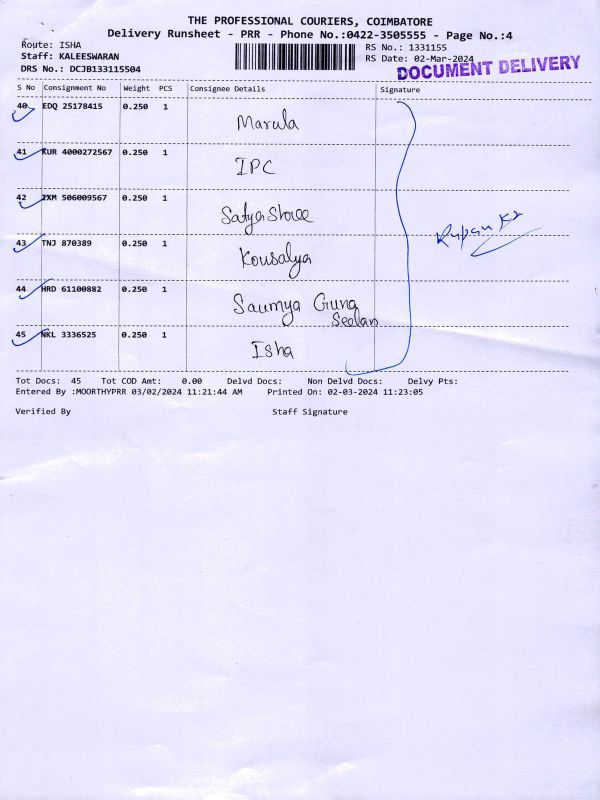 THE PROFESSIONAL COURIERS, COIMBATORE
Delivery Runsheet - PRR - Phone No.:0422-3505555 - Page No.:4
Route: ISHA
Staff: KALEESWARAN
DRS No.: DCJB133115504
RS No.: 1331155
RS Date: 02-Mar-2024
DOCUMENT DELIVERY
S No Consignment No Weight PCS Consignee Details Signature
40 EDQ 25178415 0.250 1 Marula
41 KUR 4000272567 0.250 1 IPC
42 IXM 506009567 0.250 1 Satya Shree
43 TNJ 870389 0.250 1 Kousalya
44 HRD 61100882 0.250 1 Saumya Guna
Seelan
45 NKL 3336525 0.250 1 Isha
Tot Docs: 45 Tot COD Amt: 0.00 Delvd Docs: Non Delvd Docs: Delvy Pts:
Entered By :MOORTHYPRR 03/02/2024 11:21:44 AM Printed On: 02-03-2024 11:23:05
Verified By Staff Signature